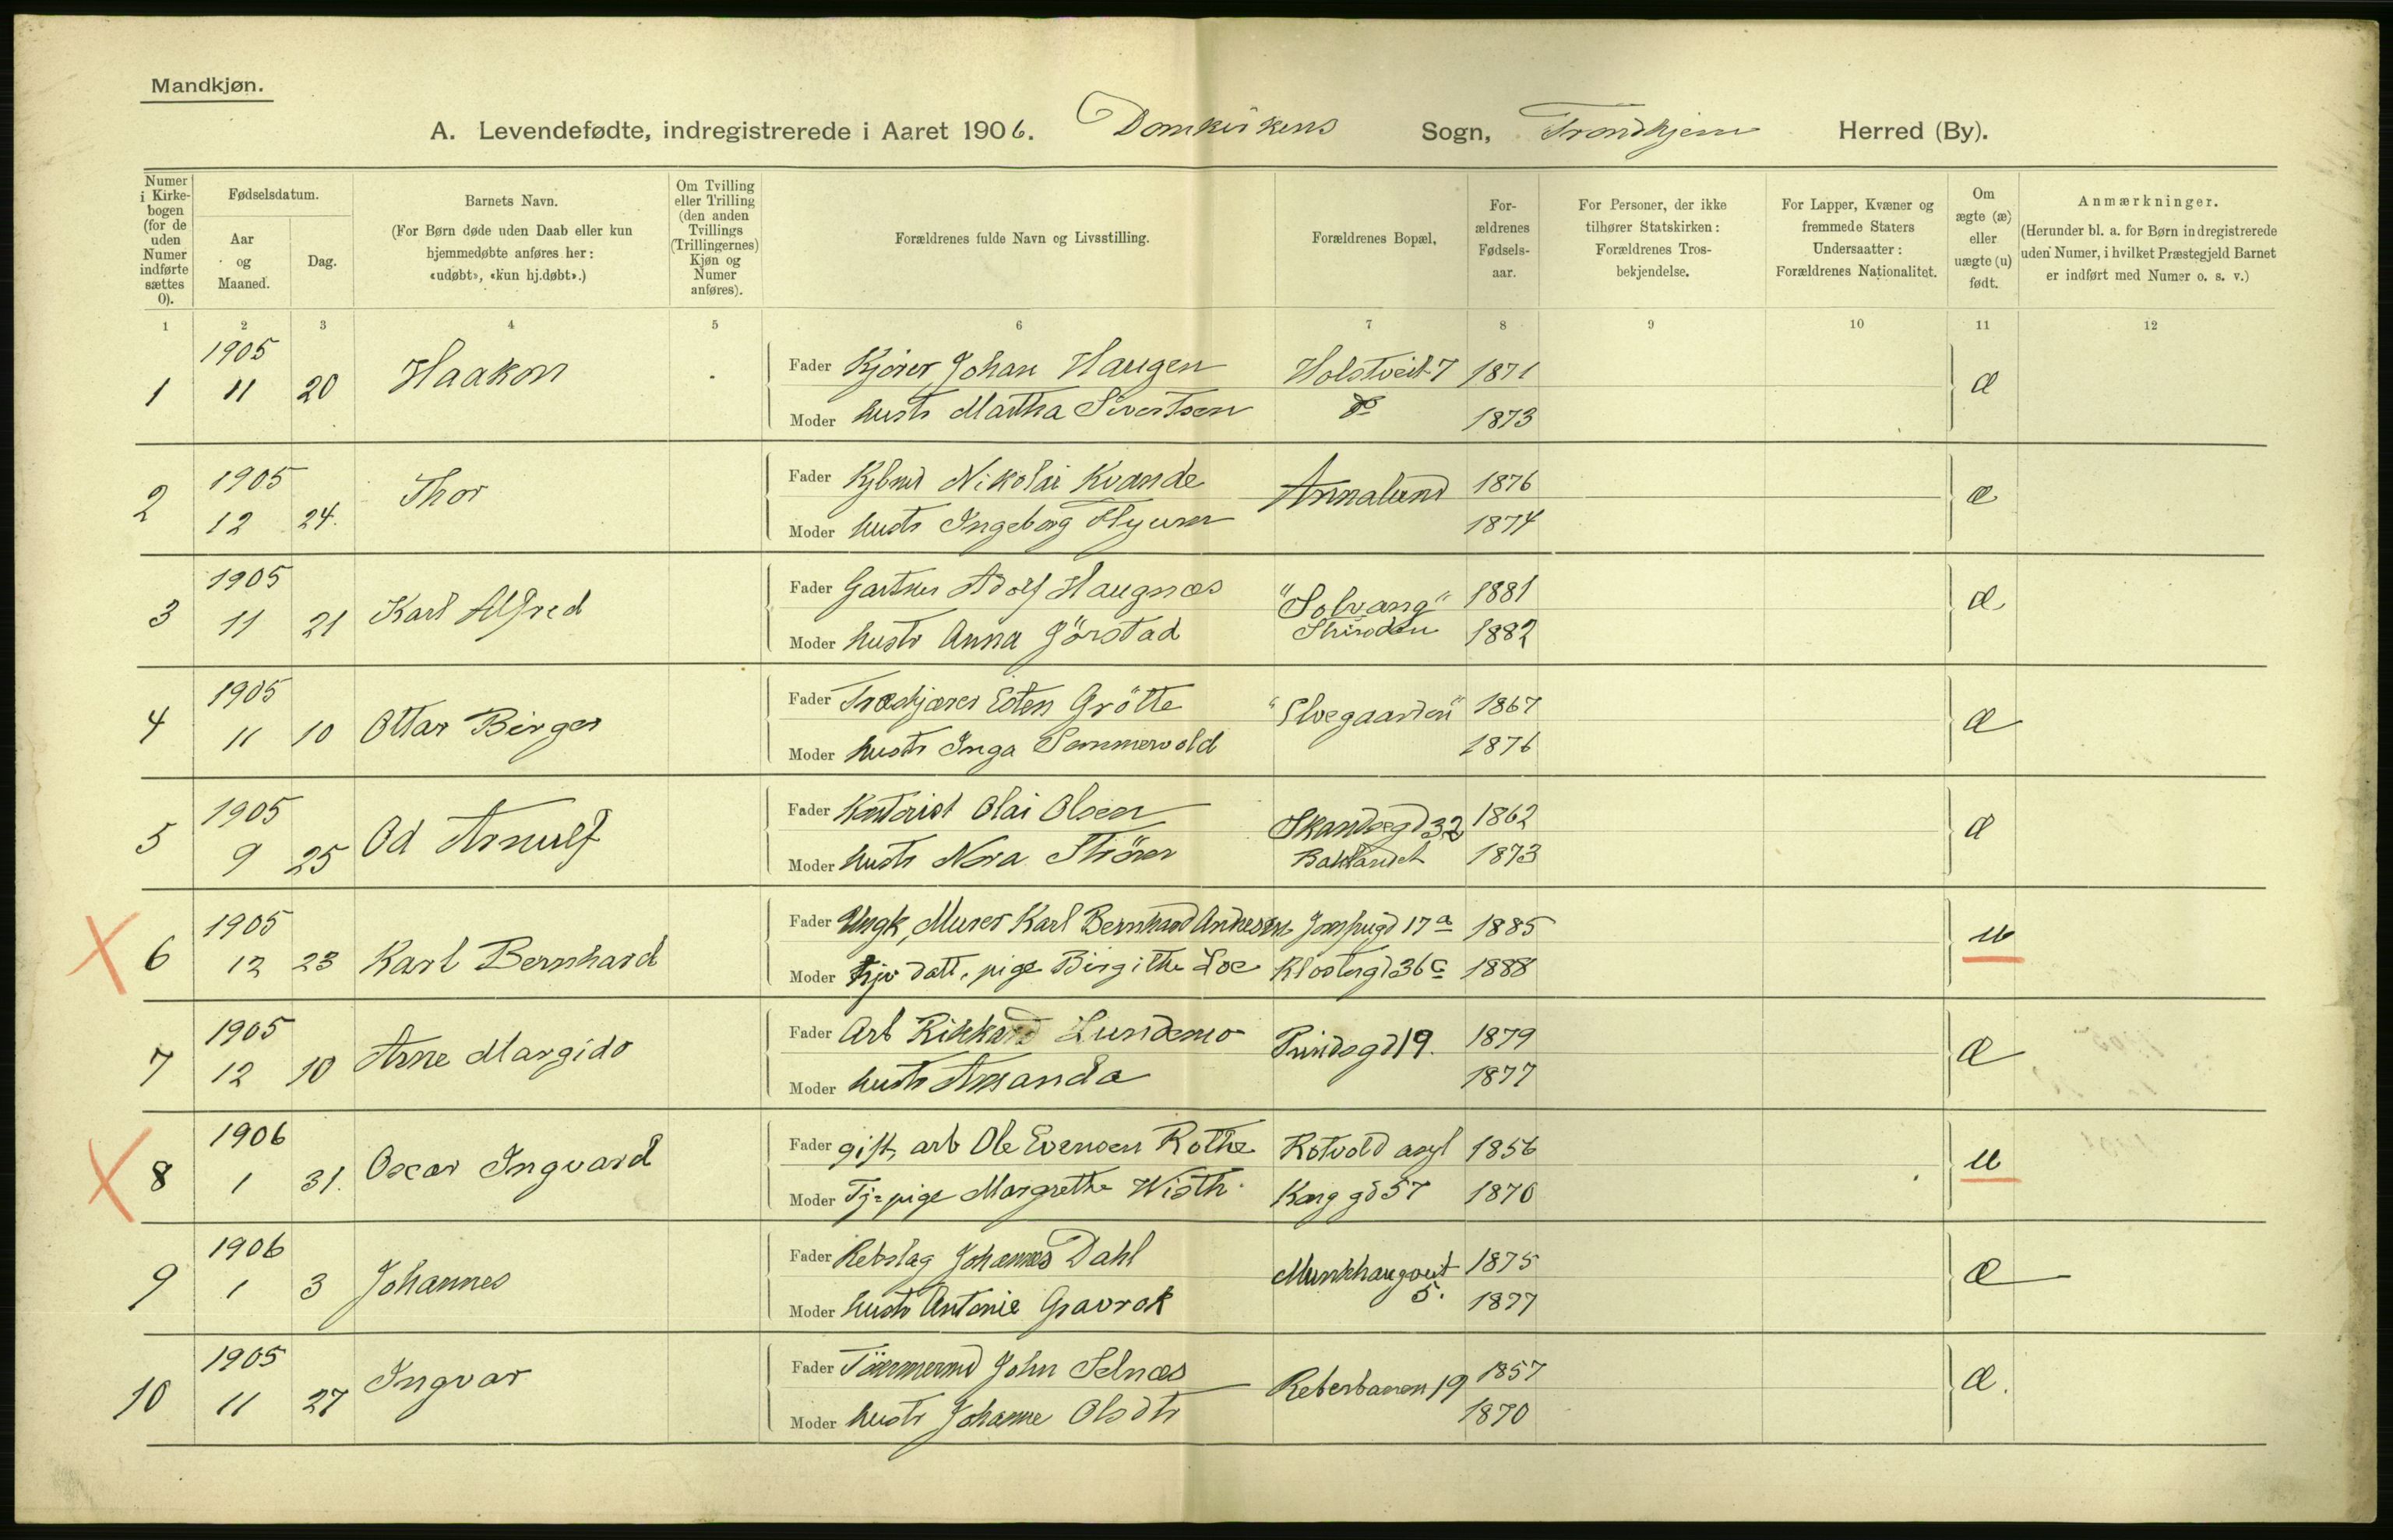 Mandkjøn.
A. Levendefødte, indregistrerede i Aaret 1906. Domkirkens Sogn, Trondhjem Herred (By).
Numer i Kirke-bogen (for de uden Numer indførte sættes 0).
Fødselsdatum.
Aar og Maaned.
Dag.
Barnets Navn.
(For Børn døde uden Daab eller kun hjemmedøbte anføres her: «udøbt», «kun hj.døbt».)
Om Tvilling eller Trilling (den anden Tvillings (Trillingernes) Kjøn og Numer anføres).
Forældrenes fulde Navn og Livsstilling.
Forældrenes Bopæl,
For-ældrenes Fødsels-aar.
For Personer, der ikke tilhører Statskirken: Forældrenes Tros-bekjendelse.
For Lapper, Kvæner og fremmede Staters Undersaatter: Forældrenes Nationalitet.
Om ægte (æ) eller uægte (u) født.
Anmærkninger.
(Herunder bl. a. for Børn indregistrerede uden Numer, i hvilket Præstegjeld Barnet er indført med Numer o. s. v.)
1 2 3 4 5 6 7 8 9 10 11 12
1 1905 11 20 Haakon
Fader Kjører Johan Haugen Holstveit 7 1871 æ
Moder hustr Martha Sivertsen do 1873
2 1905 12 24. Thor
Fader Kjbmd Nikolai Kvande Annalund 1876 æ
Moder hustr Ingeborg 1874
3 1905 11 21 Karl Alfred
Fader Gartner Adolf Haugnæs "Solvang" 1881 æ
Moder hustr Anna Jörstad Strinden 1882
4 1905 11 10 Ottar Birger
Fader Esten Grötte 1867 æ
Moder hustr Inga Sommervold 1876
5 1905 9 25 Od Arnulf
Fader Kontorist Olai Olsen 32 1862 æ
Moder hustr Nora Ström Baklandet 1873
6 1905 12 23 Karl Bernhard
Fader Ungk, Murer Karl Bernhard Andresen 17 a 1885 u
Moder datt. pige Birgitte Loe Klostergd 36 c 1888
7 1905 12 10 Arne Margido
Fader Arb Rikkard Lundemo Prindsgd 19. 1879 æ
Moder hustr Amanda 1877
8 1906 1 31. Oscar Ingvard
Fader gift, arb Ole Evensen Rothe Rotvold asyl 1856 u
Moder Tj=pige Margrethe Wisth Konggd 57 1870
9 1906 1 3 Johannes
Fader Rebslag Johannes Dahl Munkhaugveit 1875 æ
Moder hustr Antonie Gravrok 5. 1877
10 1905 11 27 Ingvar
Fader Tömmermd John Selnæs Reberbanen 19 1857 æ.
Moder hustr Johanne Olsdtr 1870